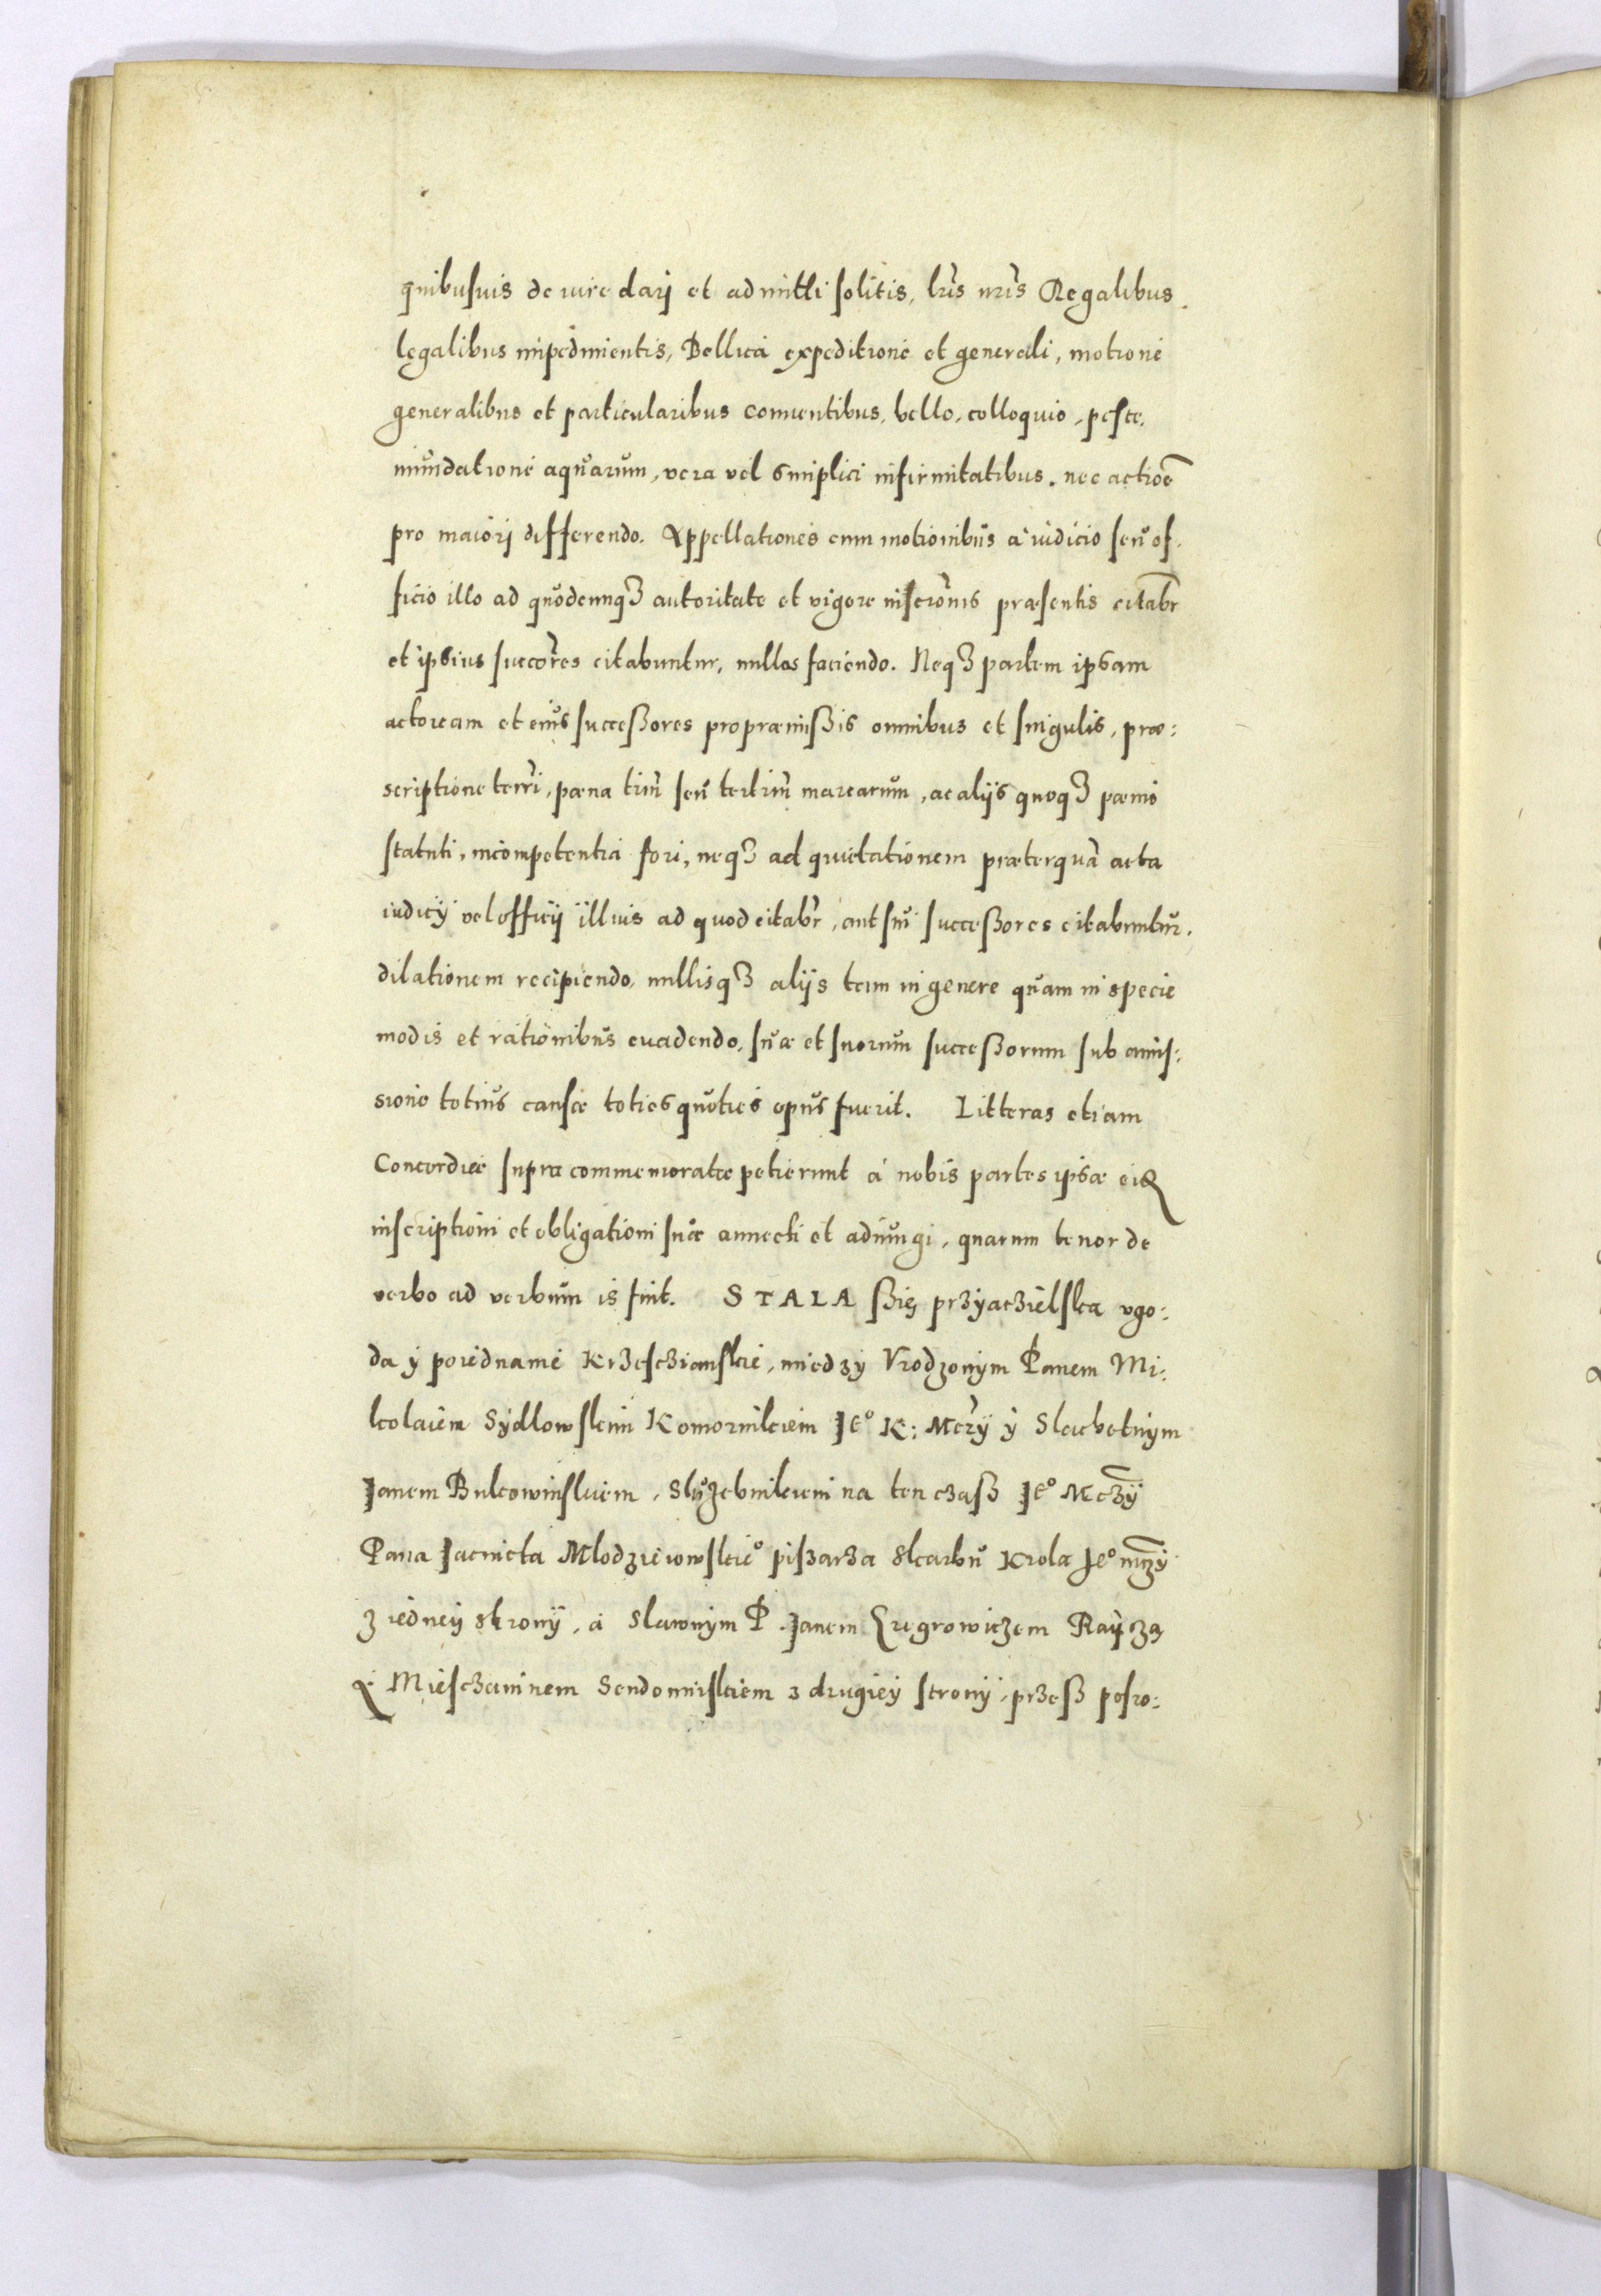 quibusuis de iure darj et admitti solitis, lris nris Regalibus
legalibus impedimentis, Bellica expeditione et generali, motione
generalibus et particularibus conuentibus, bello, colloquio, peste,
inundatione aquarum, vera vel simplici infirmitatibus. nec actiõe
pro maiorj differendo. Appellationes cum motionibus a iudicio seu of:
ficio illo ad quodcunq3 autoritate et vigore inscronis præsentis citabr
et ipsius succores citabuntur, nullas faciendo. Neq3 partem ipsam
actoream et eius successores pro præmissis omnibus et singulis, præ:
scriptione terri, pæna trim seu tertrim marcarum, ac alijs quoq3 pæmo
statuti, incompetentia fori, neq3 ad quietationem præterquã acta
iudicij vel officij illius ad quod citabr, aut sui successores citabuntur.
dilationem recipiendo, nullisq3 alijs tam in genere quam in specie
modis et rationibus euadendo, suæ et suorum successorum sub amis:
sione totius causæ toties quoties opus fuerit. Litteras etiam
Concordiæ supra commemoratæ petierunt à nobis partes ipsæ
inscriptioni et obligationi suæ annecti et adiungi, quarum tenor de
verbo ad verbum is fuit. STALA ssię przyaczielska vgo:
da y poiednanie Krzesczianskie, miedzy Vrodzonym Panem Mi:
kolaiem Sydlowskim Komornikiem Je° K: Mczy y Slachetnym
Janem Bukowinskiem, Służebnikiem na ten czass Je° Mczy
Pana Jacincta Mlodzieiowskie° pissarza Skarbu Krola Je° mczy
z iedney strony, a Slawnym P. Janem Gregrowiczem Rayczą
y Miesczaninem Sendomirskiem z drugiey strony, przess posro: